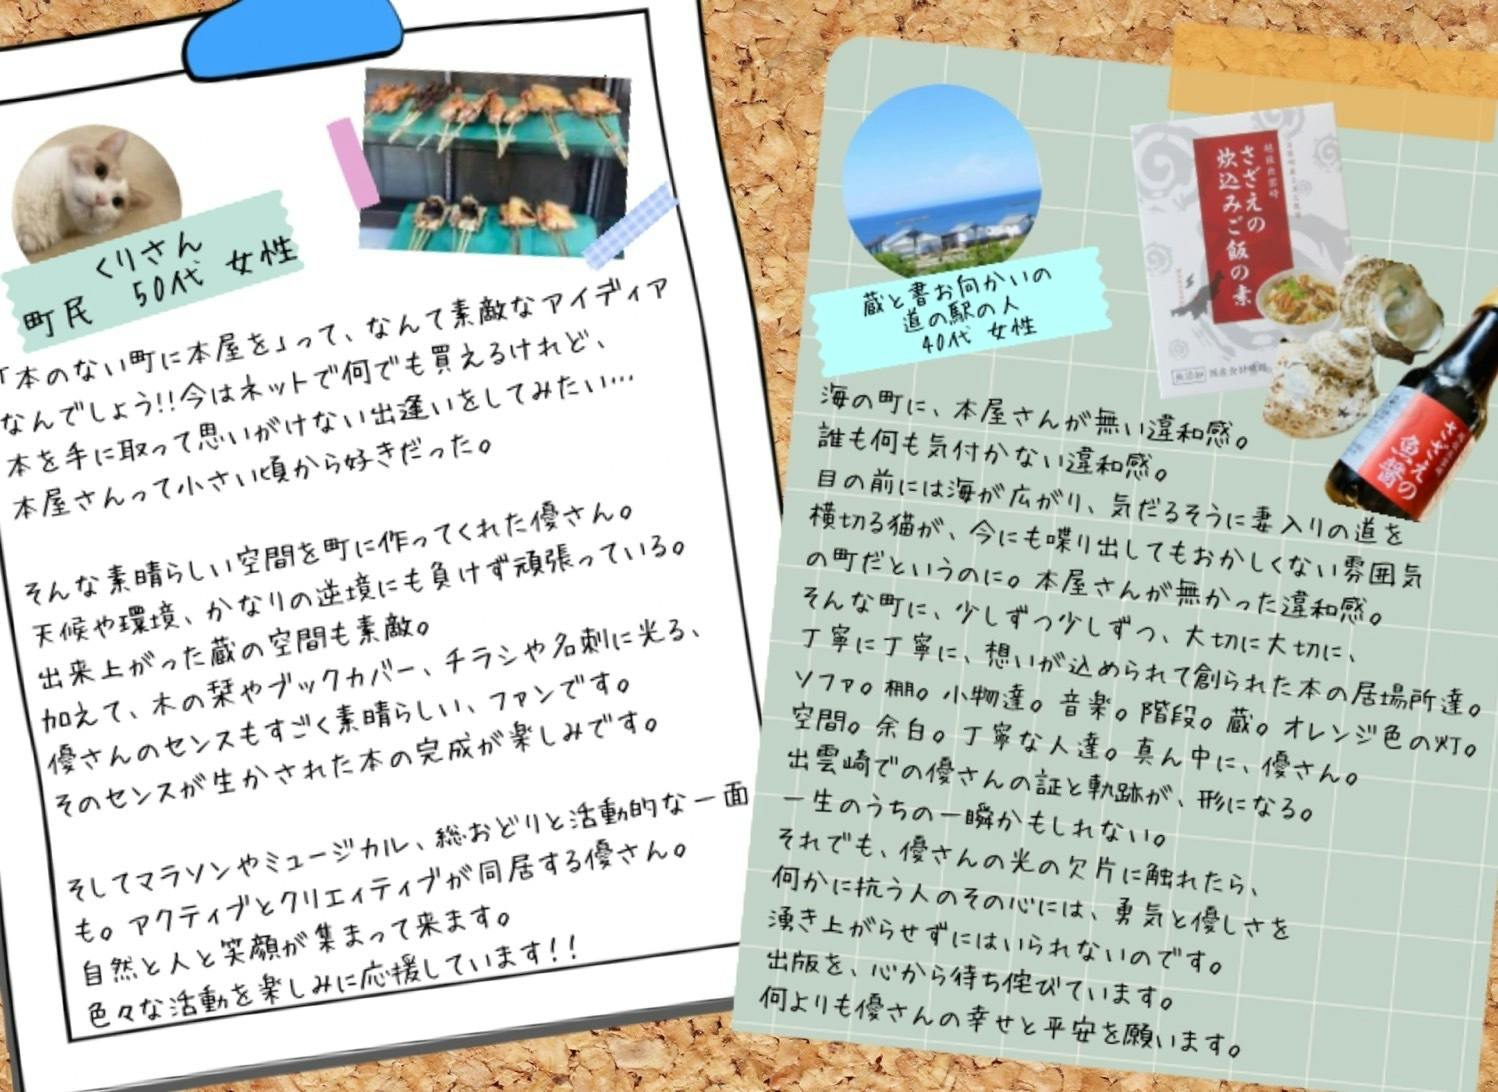 くりさん
町民 50代 女性
「本のない町に本屋を」って、なんて素敵なアイディア
なんでしょう!!今はネットで何でも買えるけれど、
本を手に取って思いがけない出逢いをしてみたい…
本屋さんって小さい頃から好きだった。
そんな素晴らしい空間を町に作ってくれた優さん。
天候や環境、かなりの逆境にも負けず頑張っている。
出来上がった蔵の空間も素敵。
加えて、木の栞やブックカバー、チラシや名刺に光る、
優さんのセンスもすごく素晴らしい、ファンです。
そのセンスが生かされた本の完成が楽しみです。
そしてマラソンやミュージカル、総おどりと活動的な一面
も。アクティブとクリエィティブが同居する優さん。
自然と人と笑顔が集まって来ます。
色々な活動を楽しみに応援しています!!
蔵と書お向かいの
道の駅の人
40代 女性
さざえの
炊込みご飯の素
無添加
さざえの
魚醤
海の町に、本屋さんが無い違和感。
誰も何も気付かない違和感。
目の前には海が広がり、気だるそうに妻入りの道を
横切る猫が、今にも喋り出してもおかしくない雰囲気
の町だというのに。本屋さんが無かった違和感。
そんな町に、少しずつ少しずつ、大切に大切に、
丁寧に丁寧に、想いが込められて創られた本の居場所達。
ソファ。棚。小物達。音楽。階段。蔵。オレンジ色の灯。
空間。余白。丁寧な人達。真ん中に、優さん。
出雲崎での優さんの証と軌跡が、形になる。
一生のうちの一瞬かもしれない。
それでも、優さんの光の欠片に触れたら、
何かに抗う人のその心には、勇気と優しさを
湧き上がらせずにはいられないのです。
出版を、心から待ち侘びています。
何よりも優さんの幸せと平安を願います。